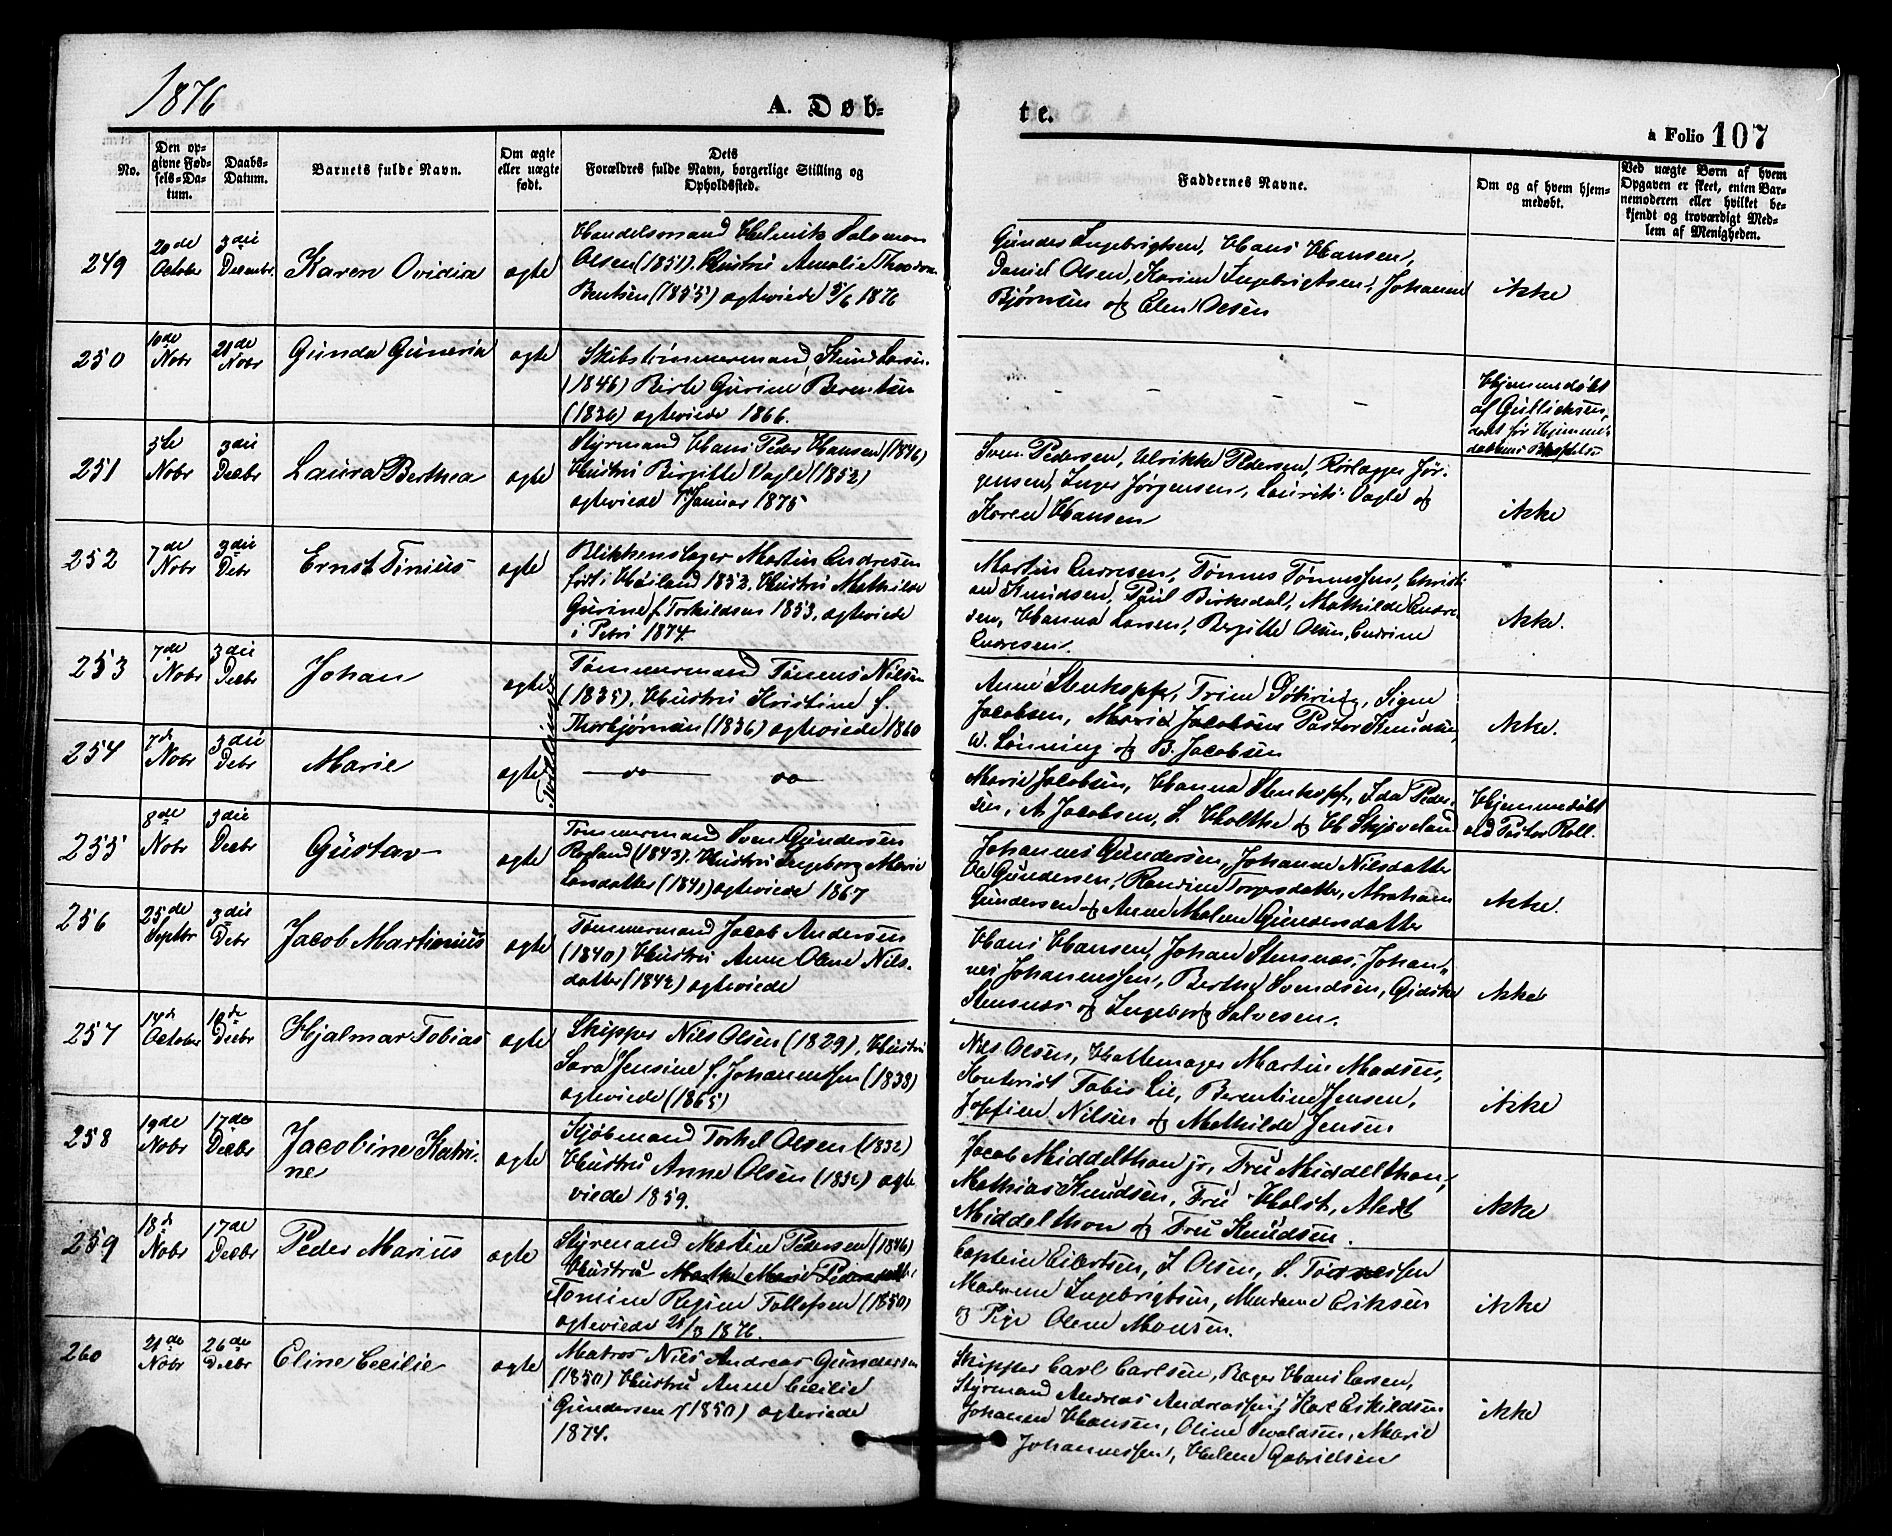 1876
A. Døb-
te.
à Folio 107
No.
Den op-
givne Fød-
sels-Da-
tum.
Daabs-
Datum.
Barnets fulde Navn.
Om ægte
eller uægte
født.
Dets
Forældres fulde Navn, borgerlige Stilling og
Opholdssted.
Faddernes Navne.
Om og af hvem hjem-
medøbt.
Ved uægte Børn af hvem
Opgaven er skeet, enten Bar-
nemoderen eller hvilket be-
kjendt og troværdigt Med-
lem af Menigheden.
249
20de
October
3die
Decembr
Karen Ovidia
ægte
Handelsmand Helmik Salomon
Olsen (1851). Hustru Amalie Theodora
Bentsen (1855) ægteviede 5/6 1876
Gunder Ingebrigtsen, Hans Hansen,
Daniel Olsen, Karine Ingebrigtsen, Johanne
Bjørnsen og Elen Olsen
ikke
250
10de
Nobr
21de
Nobr
Gunda Guneria
ægte
Skibstømmermand, Knud Larsen
(1846) Birte Gurine Berentsen
(1836) ægteviede 1866.
- - - -
Hjemmedøbt
af Gullichsen,
død før Hjemme-
daabens
251
5te
Nobr
3die
Decbr
Laura Berthea
ægte
Styrmand Hans Peder Hansen (1846)
Hustru Birgitte Vagle (1852)
ægteviede Januar 1875
Sven Pedersen, Ulrikke Pedersen, Rørlægger Jør-
gensen, Inger Jørgensen, Laurits Vagle og
Karen Hansen
ikke
252
7de
Nobr
3die
Debr
Ernst Tinius
ægte
Blikkenslager Martin Endresen
født i Høiland 1852. Hustru Mathilde
Gurine f. Torkildsen 1853. ægteviede
i Petri 1874
Martin Endresen, Tønnes Tønnessen, Christi-
an Knudsen, Paul Birkedal, Mathilde Endre-
sen, Hanna Larsen, Birgitte Olsen, Endrine
Endresen.
ikke.
253
7de
Nobr
3die
Decbr
Johan
ægte
Tvillinger
Tømmermand Tønnes Nilsen
(1835), Hustru Kristine f.
Thorbjørnsen (1836) ægteviede 1860
Anne Stenkopf, Trine Signe
Jacobsen, Marie Jacobsen Pastor Knudsen,
W. Lønning og B. Jacobsen
ikke.
254
7de
Nobr
3die
Debr
Marie
ægte
do do
Marie Jacobsen, Hanna Stenkopf, Ida Peder-
sen, A. Jacobsen, L. Holthe og H. Skjæveland
Hjemmedøbt
ved Pastor Roll.
255
8de
Nobr
3die
Decbr
Gustav
ægte
Tømmermand Sven Gundersen
Regland (1842). Hustru Ingeborg Marie
Larsdatter (1841) ægteviede 1867
Johannes Gundersen, Johanne Nilsdatter
Ole Gundersen, Randine Torgersdatter, Abraham
Gundersen og Anne Malene Gundersdatter
ikke.
256
25de
Septbr
3die
Debr
Jacob Martinius
ægte
Tømmermand Jacob Andersen
(1840) Hustru Anne Oline Nils-
datter (1842) ægteviede
Hans Hansen, Johan Stensnæs, Johan-
nes Johannessen, Berthe Svendsen, Gidske
Stensnæs og Ingeborg Salvesen.
ikke
257
14de
October
10de
Decbr
Hjalmar Tobias
ægte
Skipper Nils Olsen (1829), Hustru
Sara Jensine f. Johannessen (1838)
ægteviede (1865)
Nils Olsen, Hattemager Martin Madsen,
Kontorist Tobis Lie, Berentine Jensen,
Josefine Nilsen og Mathilde Jensen
ikke
258
19de
Nobr
17de
Decbr
Jacobine Katri-
ne
ægte
Kjøbmand Torkel Olsen (1832)
Hustru Anne Olsen (1832) ægte
viede 1859.
Jacob Middelthon jr, Fru Middelthon,
Mathias Knudsen, Fru Holst, Alert
Middelthon og Fru Knudsen.
ikke
259
18de
Nobr
17de
Decbr
Peder Marius
ægte
Styrmand Martin Pedersen (1846)
Hustru Marthe Marie Pedersdatter
Tomine Regine Tollefsen (1850)
ægteviede 21/3 1876.
Captein Eilertsen, J Olsen, S. Tønnessen
Madame Ingebrigtsen, Madame Eriksen
og Pige Olene Monsen.
ikke
260
21de
Nobr
26de
Decbr
Eline Cecilie
ægte
Matros Nils Andreas Gundersen
(1850) Hustru Anne Cecilie
Gundersen (1850) ægteviede
1874.
Skipper Carl Carlsen, Bager Hans Larsen,
Styrmand Andreas Andreassen, Karl Eskildsen
Johanne Hansen, Oline Sivaldsen, Marie
Johannessen, Helene Gabrielsen
ikke